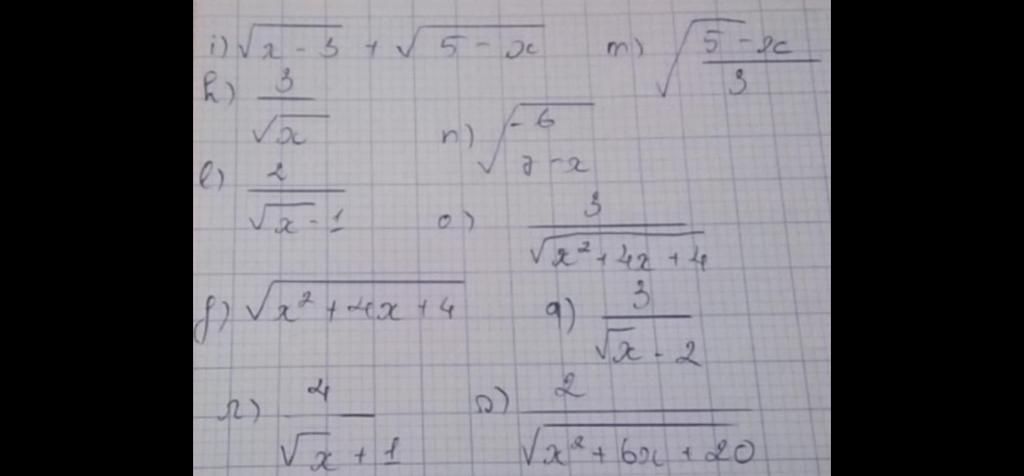 i) √(x - 3) + √(5 - x)
m) √((5 - x)/3)
k) 3/√x
n) √(-6/(7 - x))
l) 2/(√x - 1)
o) 3/√(x² + 4x + 4)
p) √(x² + 4x + 4)
q) 3/(√x - 2)
r) 4/(√x + 1)
s) 2/√(x² + 6x + 20)